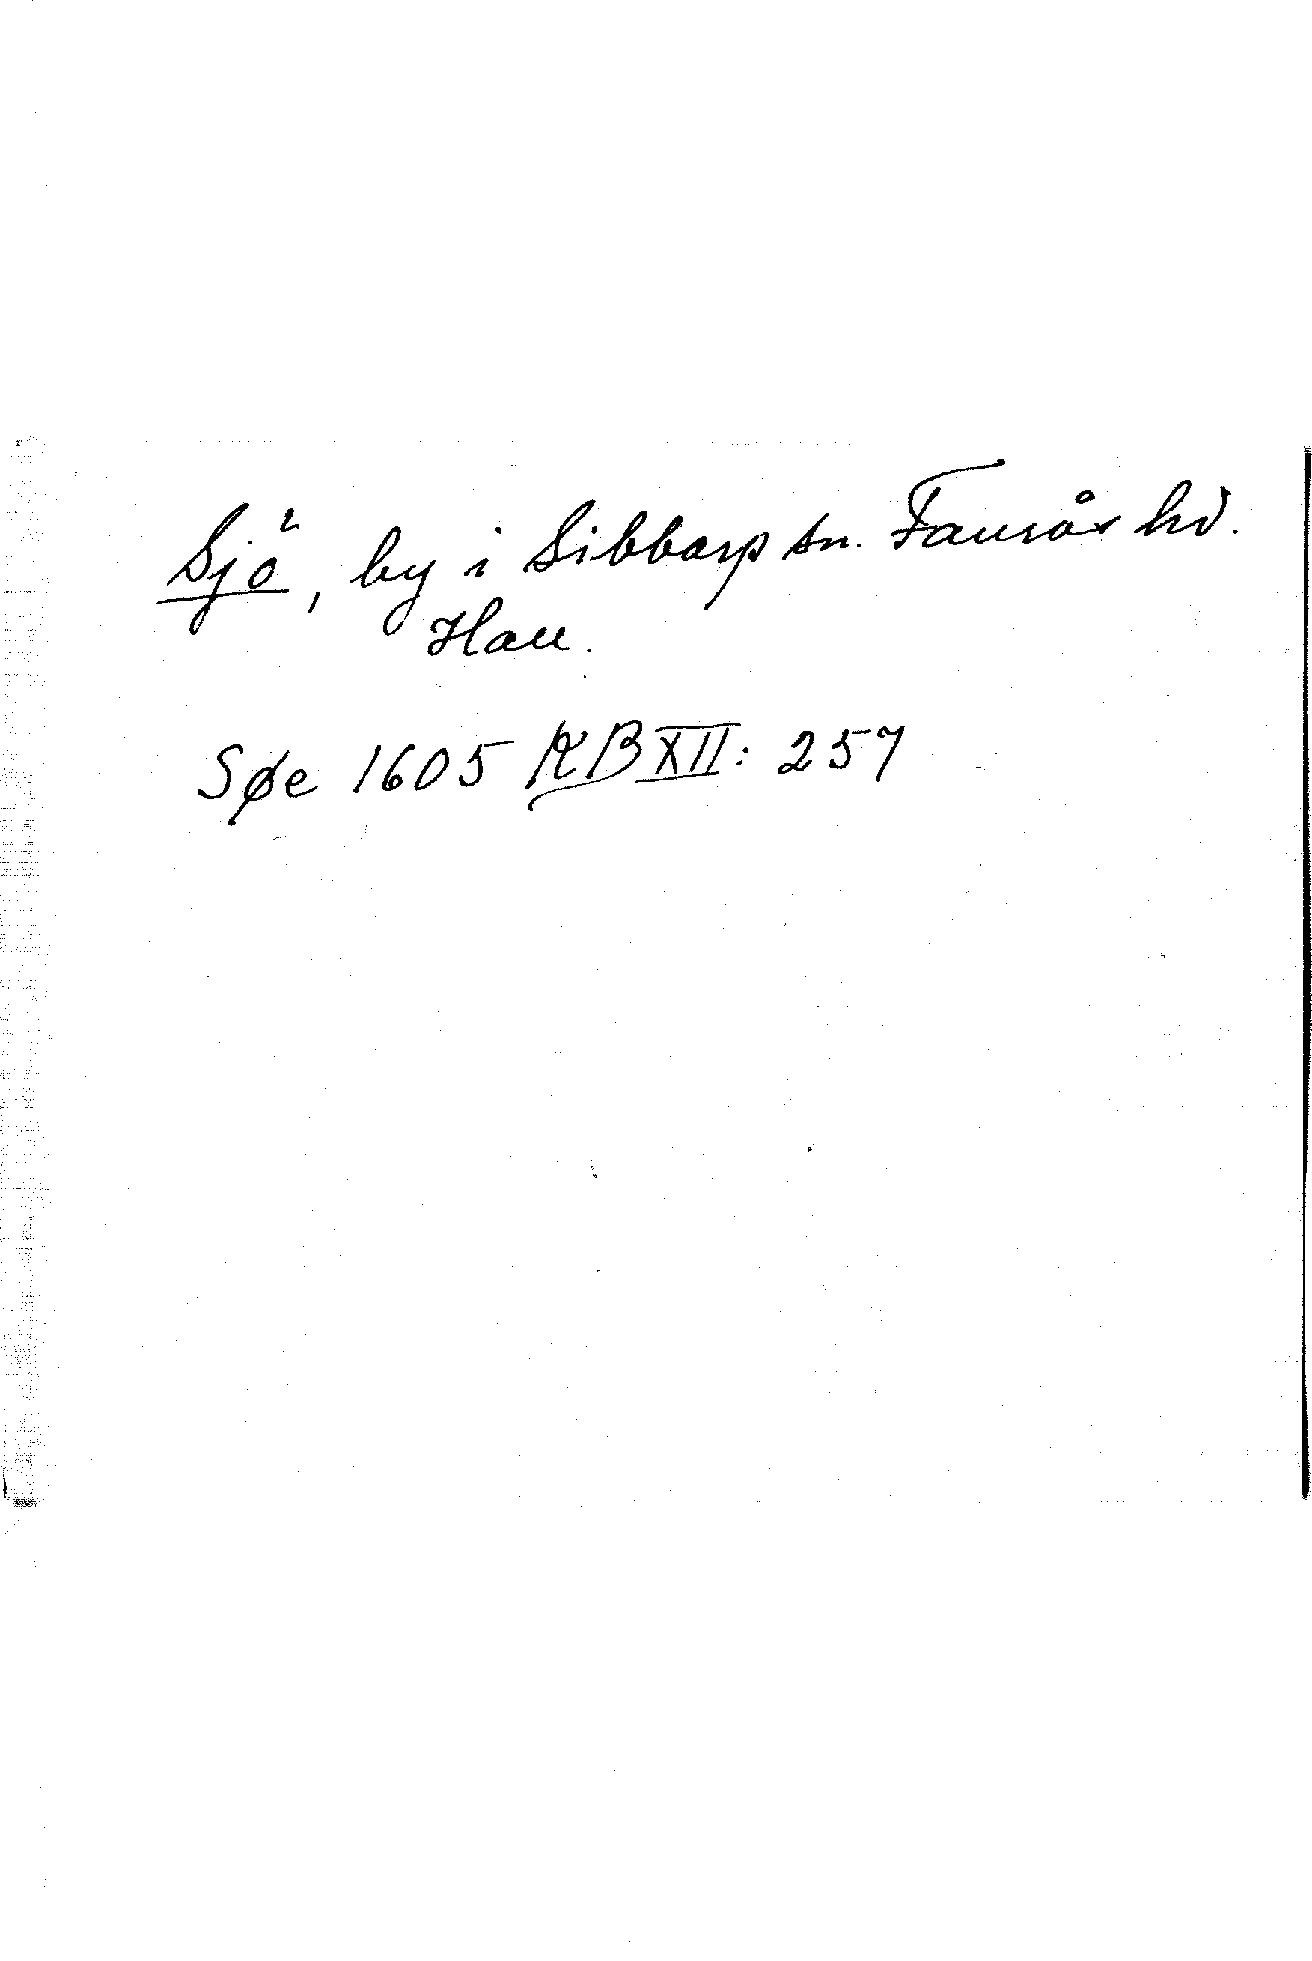 Sjö, by i Sibbarp sn. Faurås hd.
Hall.
Søe 1605 KB XII: 257